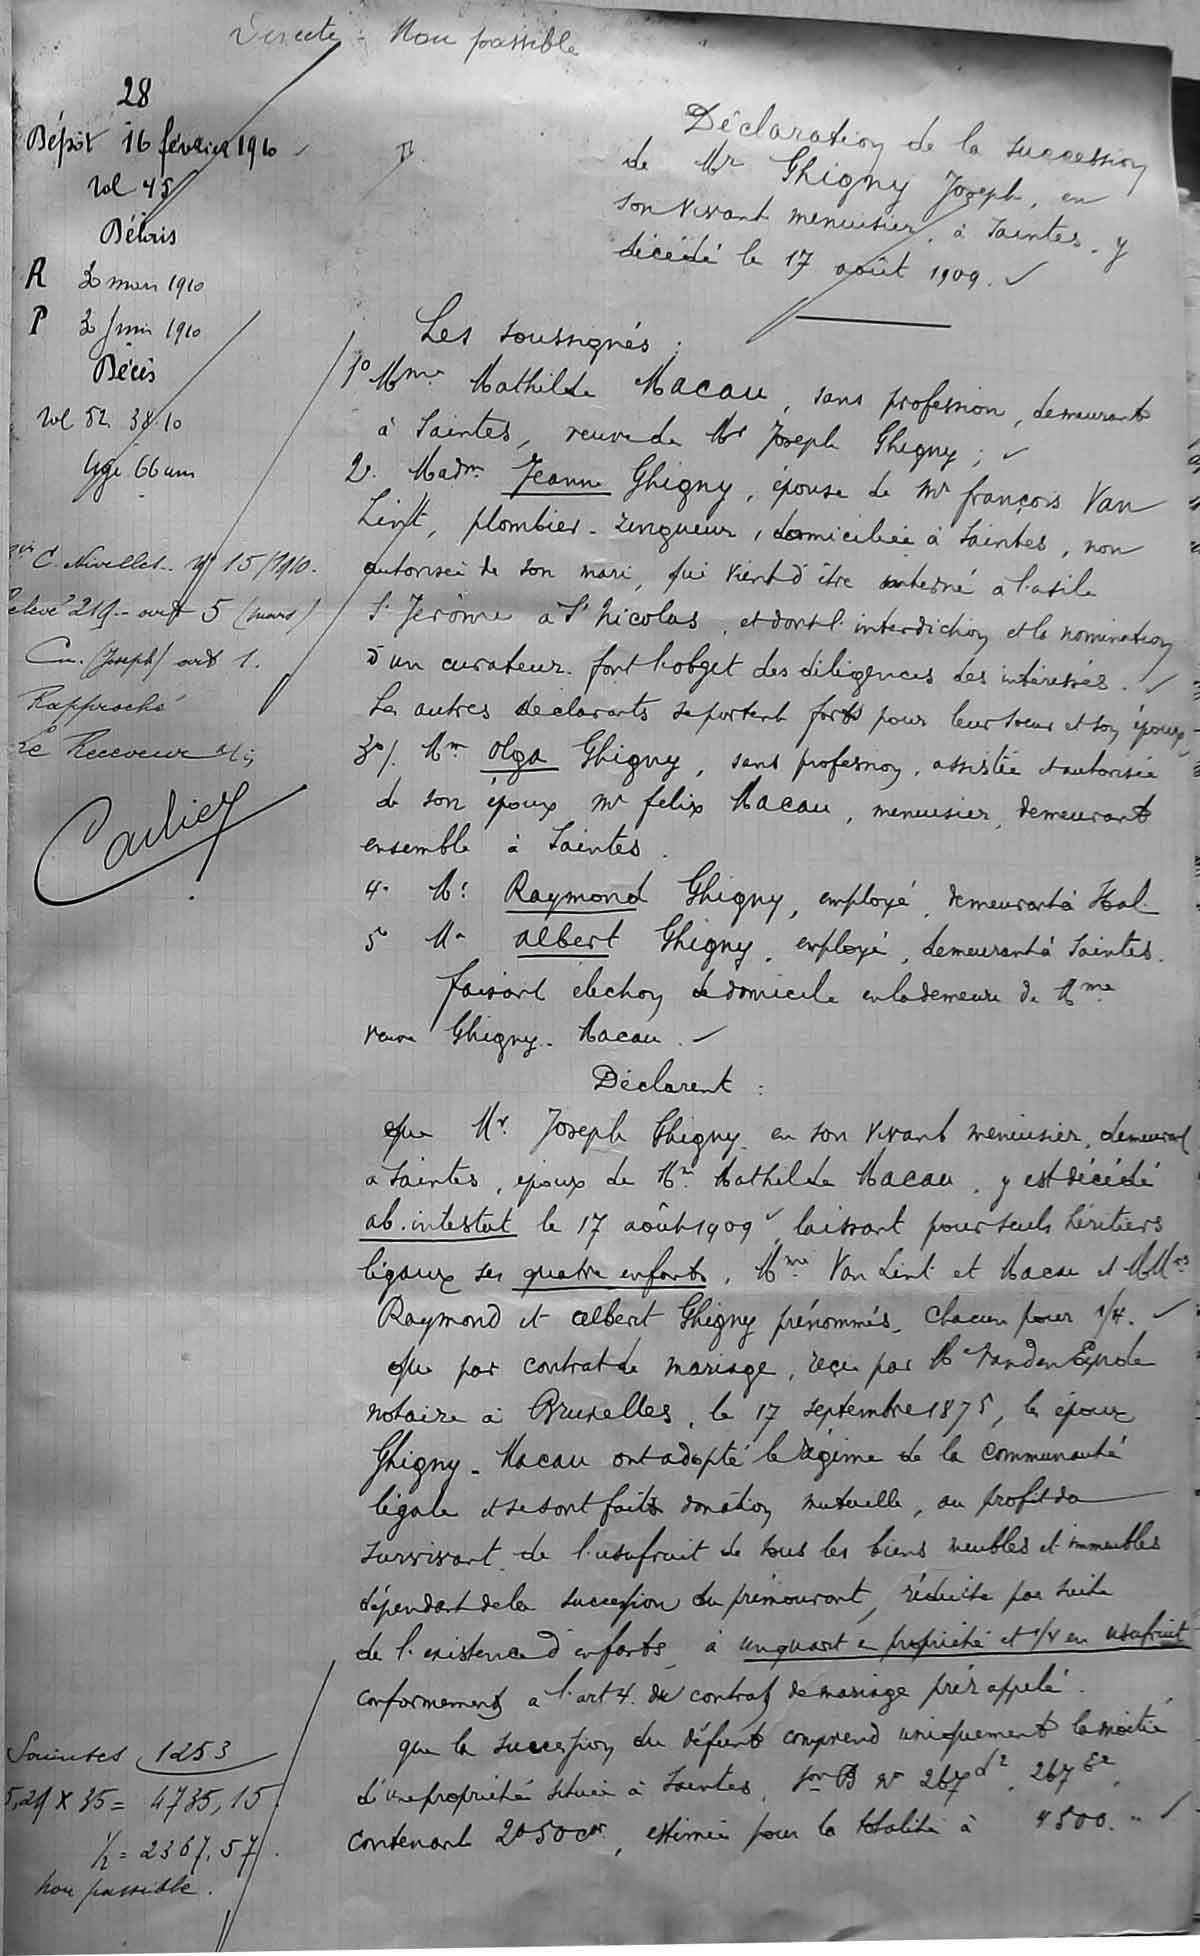 Directe - Non passible
28
Dépôt 16 février 1910
vol 45
Débris
R 30 mars 1910
P 30 juin 1910
Décès
vol 52 38.10
âge 66 ans
C. Nivelles. n° 15/1910.
219 - art 5 (mars)
(Joseph) art 1.
Rapproché
Le Receveur
Déclaration de la succession
de Mr Ghigny Joseph, en
son vivant menuisier, à Saintes, y
décédé le 17 août 1909.
Les soussignés :
1° Mme Mathilde Macau, sans profession, demeurant
à Saintes, veuve de Mr Joseph Ghigny ;
2. Madme Jeanne Ghigny, épouse de Mr françois Van
Lint, plombier-zingueur, domiciliée à Saintes, non
autorisée de son mari, qui vient d'être interné à l'asile
St Jérôme à St Nicolas, et dont l'interdiction et la nomination
d'un curateur font l'objet des diligences des intéressés.
Les autres déclarants se portent forts pour leur soeur et son époux,
3°/. Mme Olga Ghigny, sans profession, assistée et autorisée
de son époux Mr felix Macau, menuisier, demeurant
ensemble à Saintes.
4. Mr Raymond Ghigny, employé, demeurant à Hal.
5° Mr albert Ghigny, employé, demeurant à Saintes.
faisant élection de domicile en la demeure de Mme
veuve Ghigny-Macau.
Déclarent :
que Mr. Joseph Ghigny en son vivant menuisier, demeurant
à Saintes, époux de Me Mathilde Macau, y est décédé
ab.intestat le 17 août 1909, laissant pour seuls héritiers
légaux ses quatre enfants, Mme Van Lint et Macau et MMrs
Raymond et albert Ghigny prénommés, chacun pour 1/4.
que par contrat de mariage, reçu par Me VandenEynde
notaire à Bruxelles, le 17 septembre 1875, les époux
Ghigny-Macau ont adopté le régime de la communauté
légale et se sont faits donation mutuelle, au profit du
survivant, de l'usufruit de tous les biens meubles et immeubles
dépendant de la succession du prémourant, réduite par suite
de l'existence d'enfants, à un quart en propriété et 1/4 en usufruit
conformement à l'art 4. du contrat de mariage prérappelé.
que la succession du défunt comprend uniquement la moitié
d'une propriété située à Saintes, son B n° 267 d2, 267 e2,
contenant 2a 50ca, estimée pour la totalité à 4500. "
Saintes 1253
5,29 X 35 = 4735,15
1/2 = 2367,57
Non passible.